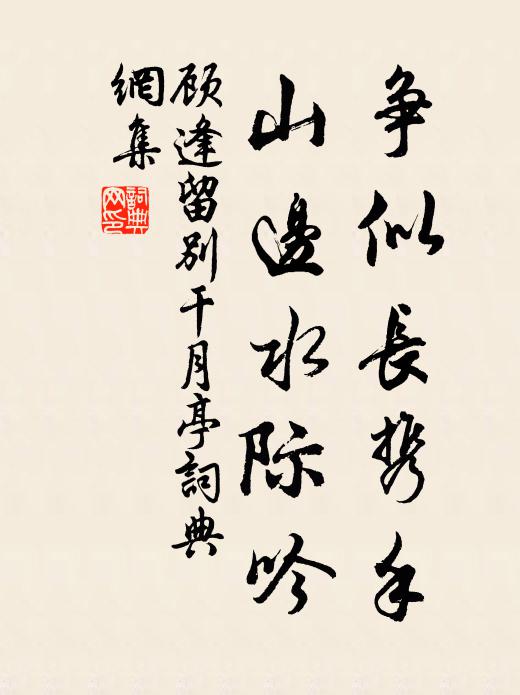 争似長携手
山邊水际吟
顾逢留别干月亭詞典
網集
詞典
网印